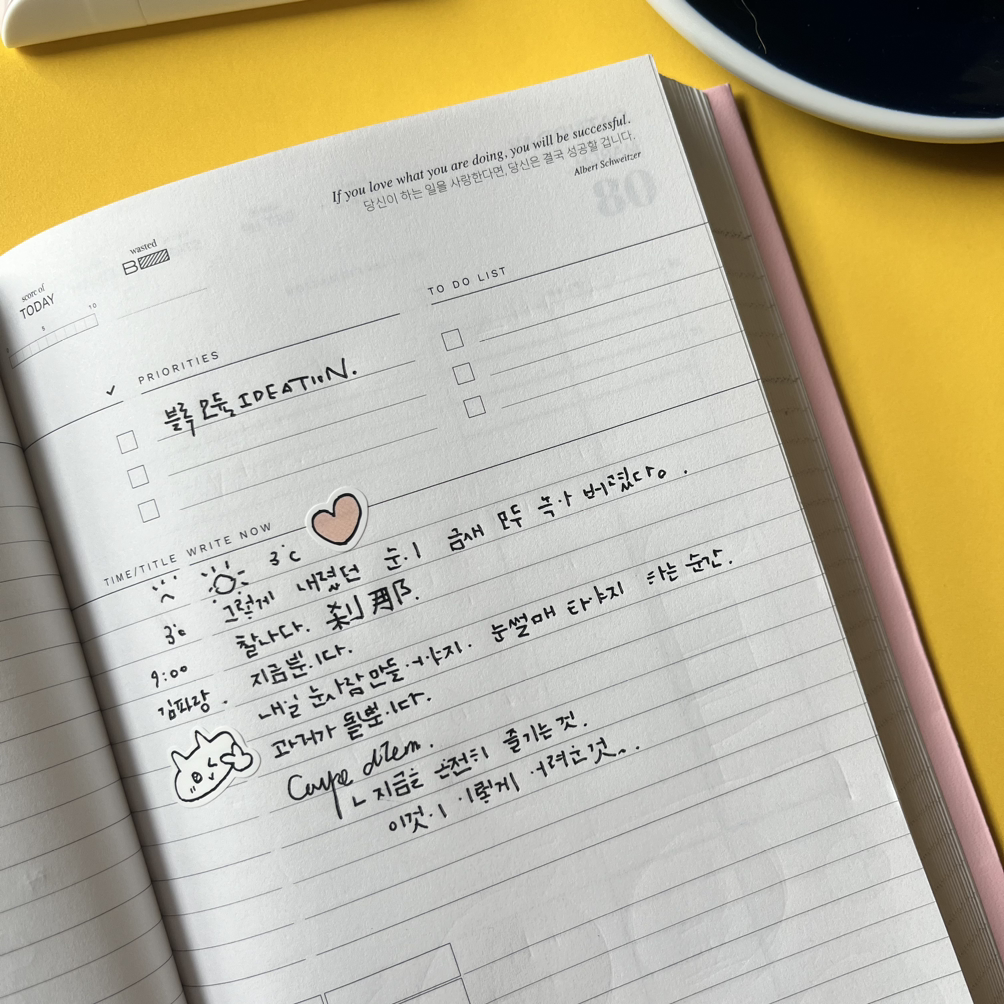 If you love what you are doing, you will be successful.
당신이 하는 일을 사랑한다면, 당신은 결국 성공할 겁니다.
Albert Schweitzer
80
wasted
score of
TODAY
5 10
TO DO LIST
PRIORITIES
블록 모듈 IDEATION.
TIME/TITLE WRITE NOW
3°C
그렇게 내렸던 눈이 금새 모두 녹아 버렸다.
3°c 찰나다. 刹那.
9:00 지금뿐이다.
김파랑. 내일 눈사람 만들어야지. 눈썰매 타야지 하는 순간.
과거가 될뿐이다.
Carpe diem.
ㄴ 지금을 온전히 즐기는 것.
이것이 이렇게 어려운것..